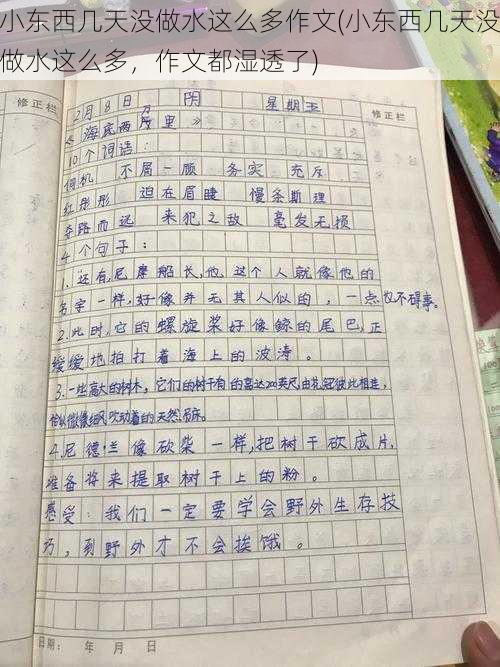 小东西几天没做水这么多作文(小东西几天没
做水这么多，作文都湿透了)
修正栏
2月8日 阴 星期五
修正栏
《海底两万里》
10个词语：
伺机 不屑一顾 务实 充斥
红彤彤 迫在眉睫 慢条斯理
夺路而逃 来犯之敌 毫发无损
4个句子：
1.还有,尼摩船长,他,这个人就像他的
名字一样,好像并无其人似的，一点也不碍事。
2.此时,它的螺旋桨好像鲸的尾巴,正
缓缓地拍打着海上的波涛。
3.一些高大的树木，它们的树干有的高达200英尺,由花冠彼此相连,
恰似微微细风吹动着的天然吊床。
4.尼德·兰像砍柴一样,把树干砍成片,
准备将来提取树干上的粉。
感受：我们一定要学会野外生存技
巧，到野外才不会挨饿。
日期： 年 月 日